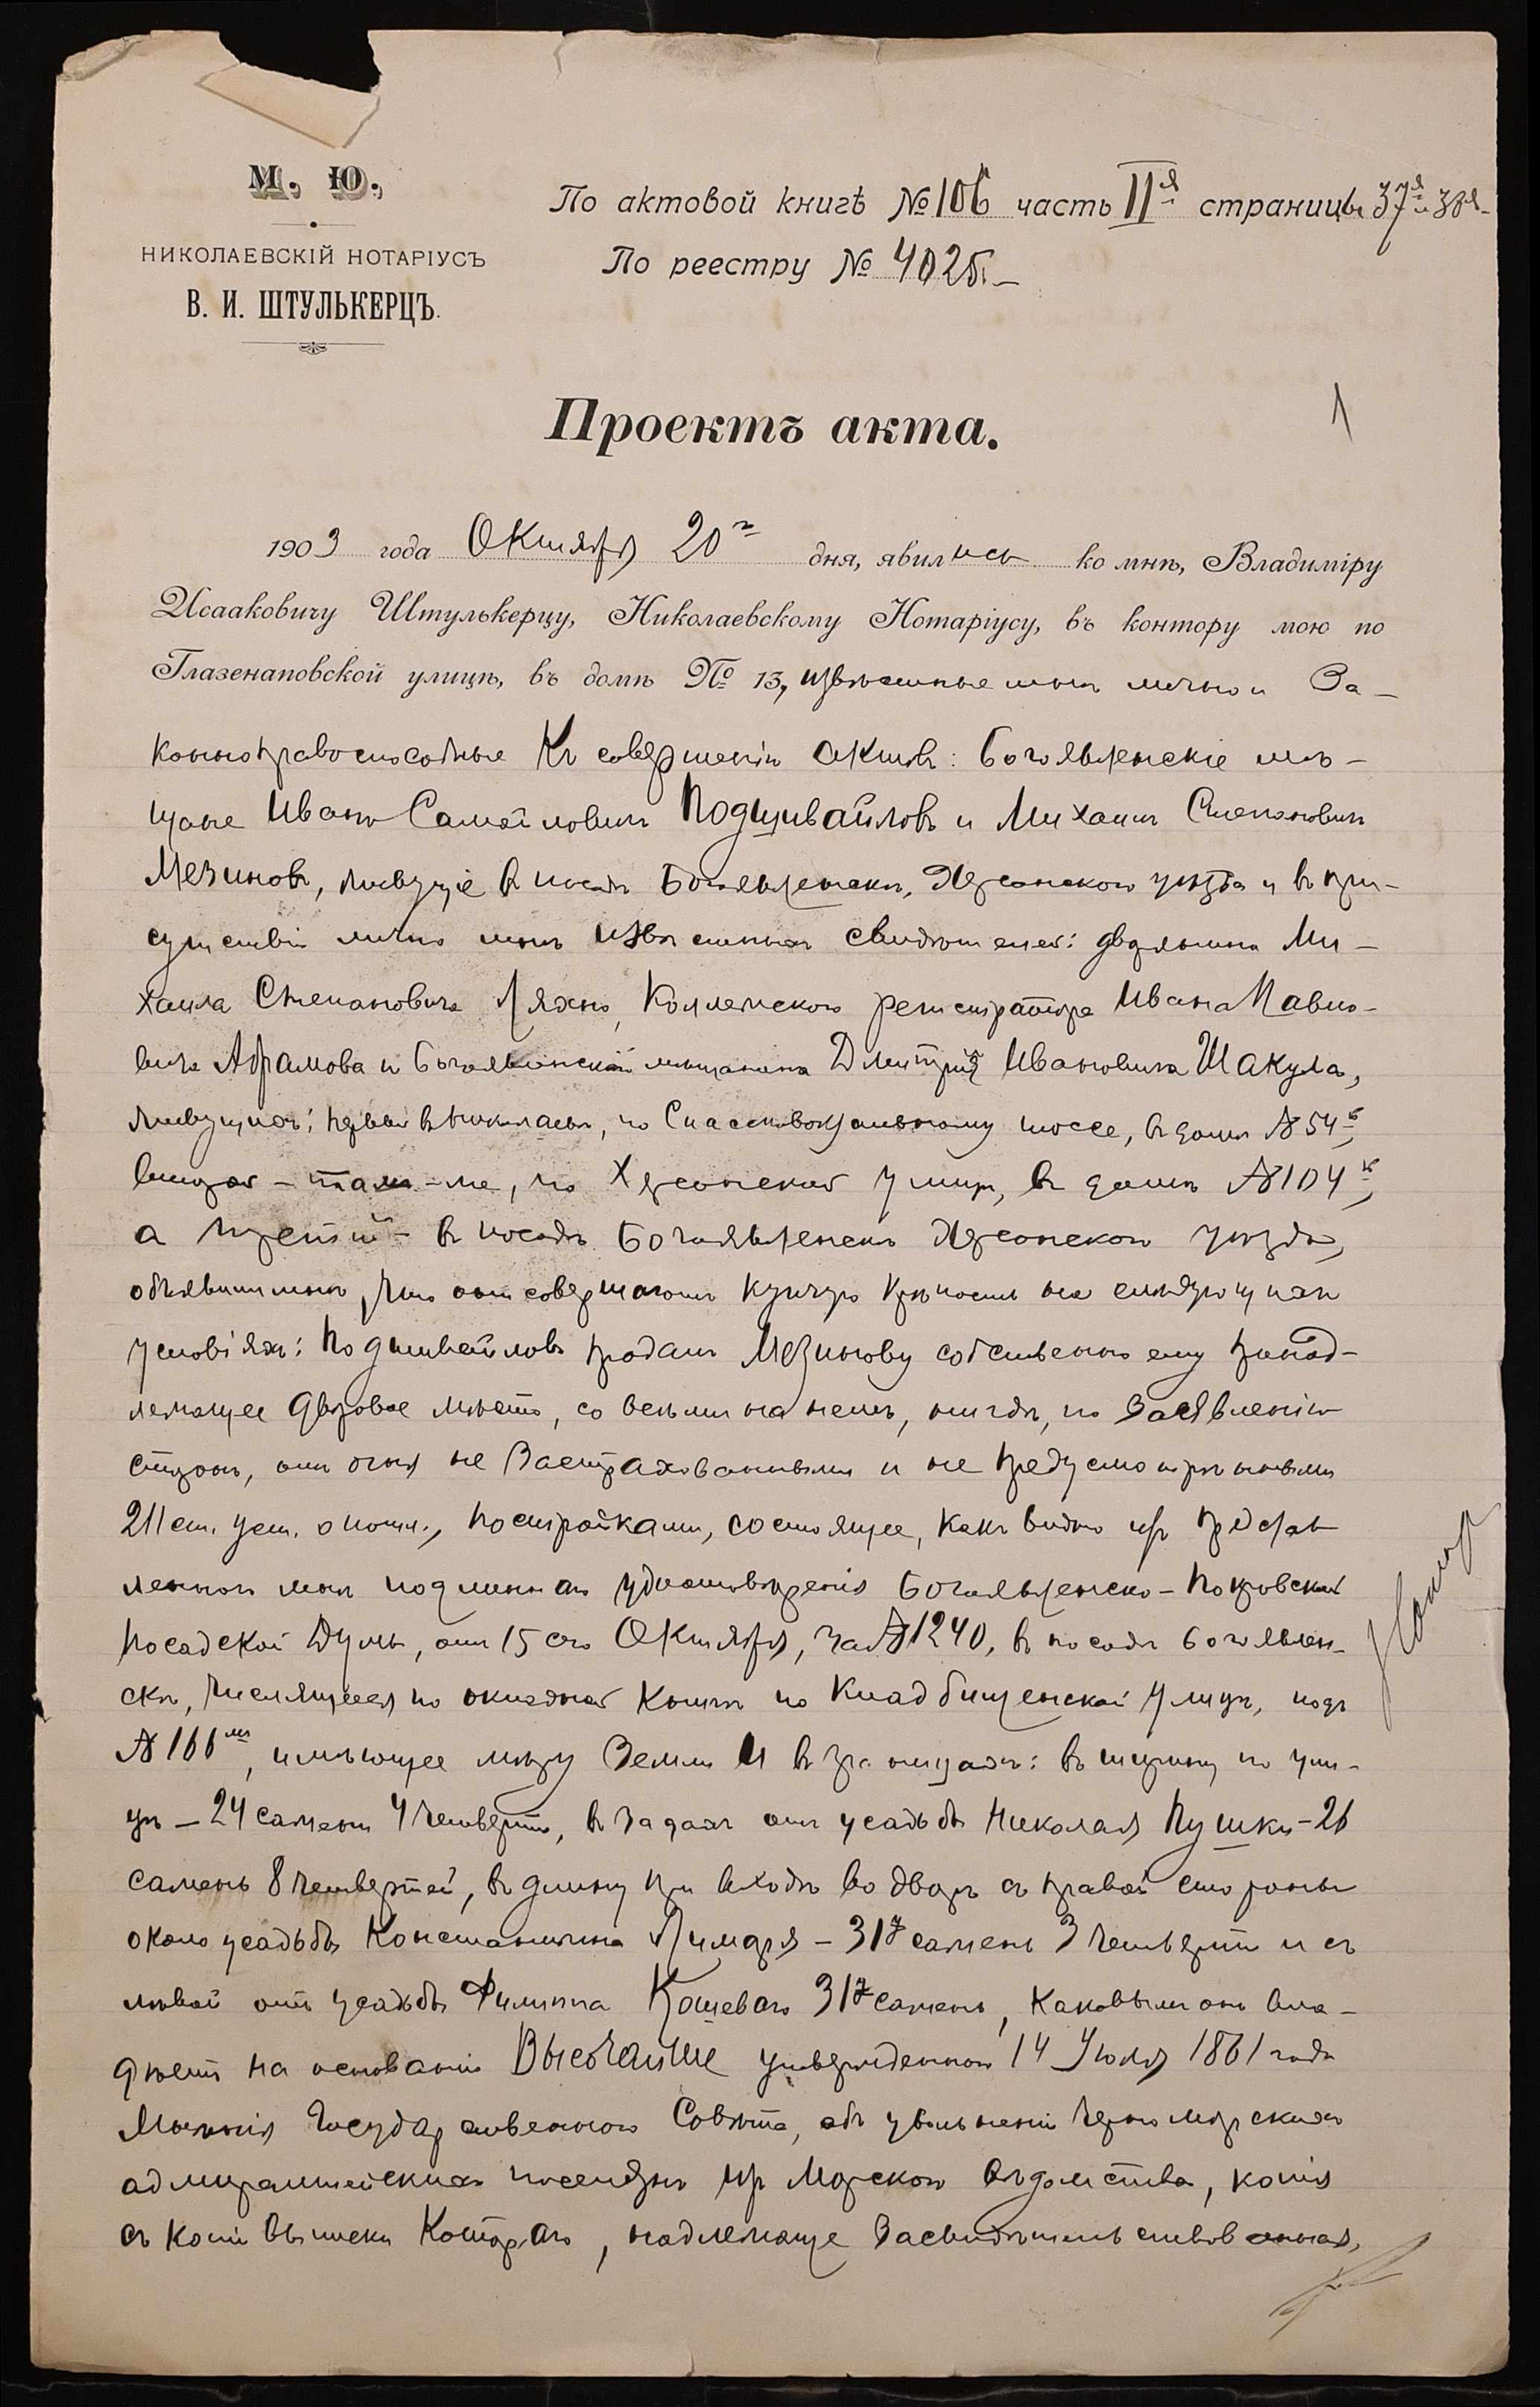 М. Ю.
НИКОЛАЕВСКІЙ НОТАРІУСЪ
В. И. ШТУЛЬКЕРЦЪ.
По актовой книгѣ № 106 часть II я страницы 37я и 38я
По реестру № 4025.
Проектъ акта.
1
1903 года Октября 20го дня, явились ко мнѣ, Владиміру
Исааковичу Штулькерцу, Николаевскому Нотаріусу, въ контору мою по
Глазенаповской улицѣ, въ домѣ № 13, извѣстные мнѣ лично и за-
конноправоспособные къ совершенію актовъ: Богоявленскіе мѣ-
щане Иванъ Самойловичъ Подшивайловъ и Михаилъ Степановичъ
Мезиновъ, живущіе въ посадѣ Богоявленскѣ, Херсонскаго уѣзда и въ при-
сутствіи лично мнѣ извѣстныхъ свидѣтелей: дворянина Ми-
хаила Степановича Ляхно, Коллежскаго регистратора Ивана Павло-
вича Абрамова и Богоявленскаго мѣщанина Дмитрія Ивановича Шакула,
живущихъ: первый въ Николаевѣ, по Спассковокзальному шоссе, въ домѣ № 54й,
второй – тамъ-же, по Херсонской улицѣ, въ домѣ № 104й,
а третій – въ посадѣ Богоявленскѣ Херсонскаго уѣзда,
объявили мнѣ, что они совершаютъ купчую крѣпость на слѣдующихъ
условіяхъ: Подшивайловъ продалъ Мезинову собственно ему принад-
лежащее дворовое мѣсто, со всѣми на немъ, нигдѣ, по заявленію
сторонъ, отъ огня не застрахованными и не предусмотрѣнными
211 ст. уст. о пошл., постройками, состоящее, какъ видно изъ представ
леннаго мнѣ подлиннаго удостовѣренія Богоявленско-Покровской
Посадской Думы, отъ 15 сего Октября, за № 1240, въ посадѣ Богоявлен-
скѣ, числящееся по окладной книгѣ по Кладбищенской улицѣ, подъ
№ 166мъ, имѣющее мѣру земли и въ границахъ: въ ширину по ули-
цѣ – 24 сажени 4 четверти, въ задахъ отъ усадьбы Николая Пушки – 26
сажень 8 четвертей, въ длину при входѣ во дворъ съ правой стороны
около усадьбы Константина Лимаря – 31 сажень 3 четверти и съ
лѣвой отъ усадьбы Филиппа Кошеваго 31 сажень, каковымъ онъ вла-
дѣетъ на основаніи Высочайше утвержденнаго 14 Іюля 1861 года
Мнѣнія Государственнаго Совѣта, объ увольненіи Черноморскихъ
адмиралтейскихъ поселянъ изъ Морскаго вѣдомства, копія
съ копіи выписки котораго, надлежаще засвидѣтельствованная,